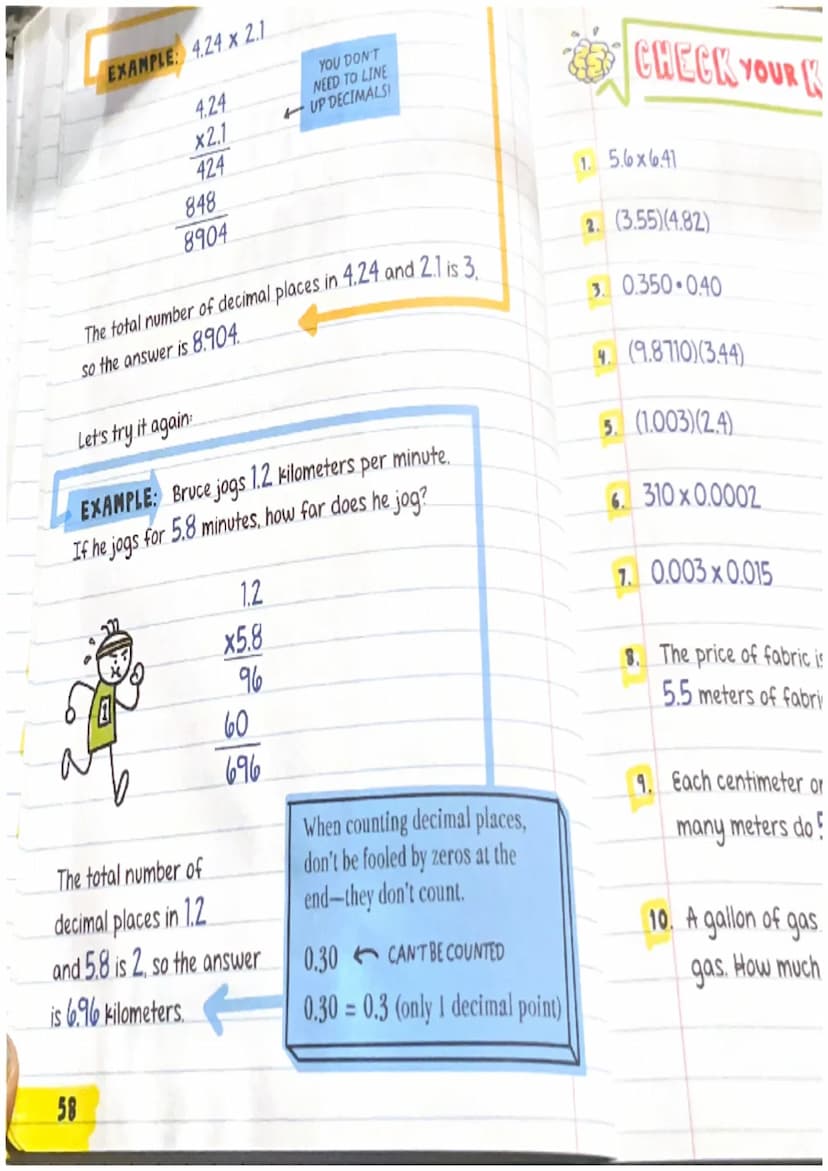 EXAMPLE: 4.24 x 2.1
YOU DON'T
NEED TO LINE
UP DECIMALS!
4.24
x2.1
424
848
8904
The total number of decimal places in 4.24 and 2.1 is 3,
so the answer is 8.904.
Let's try it again:
EXAMPLE: Bruce jogs 1.2 kilometers per minute.
If he jogs for 5.8 minutes, how far does he jog?
1.2
x5.8
96
60
696
1
The total number of
decimal places in 1.2
and 5.8 is 2, so the answer
is 6.96 kilometers.
When counting decimal places,
don't be fooled by zeros at the
end—they don't count.
0.30 CAN'T BE COUNTED
0.30 = 0.3 (only 1 decimal point)
58
CHECK YOUR K
1. 5.6 x 6.41
2. (3.55)(4.82)
3. 0.350 • 0.40
4. (9.8710)(3.44)
5. (1.003)(2.4)
6. 310 x 0.0002
7. 0.003 x 0.015
8. The price of fabric is
5.5 meters of fabri
9. Each centimeter on
many meters do 5
10. A gallon of gas
gas. How much